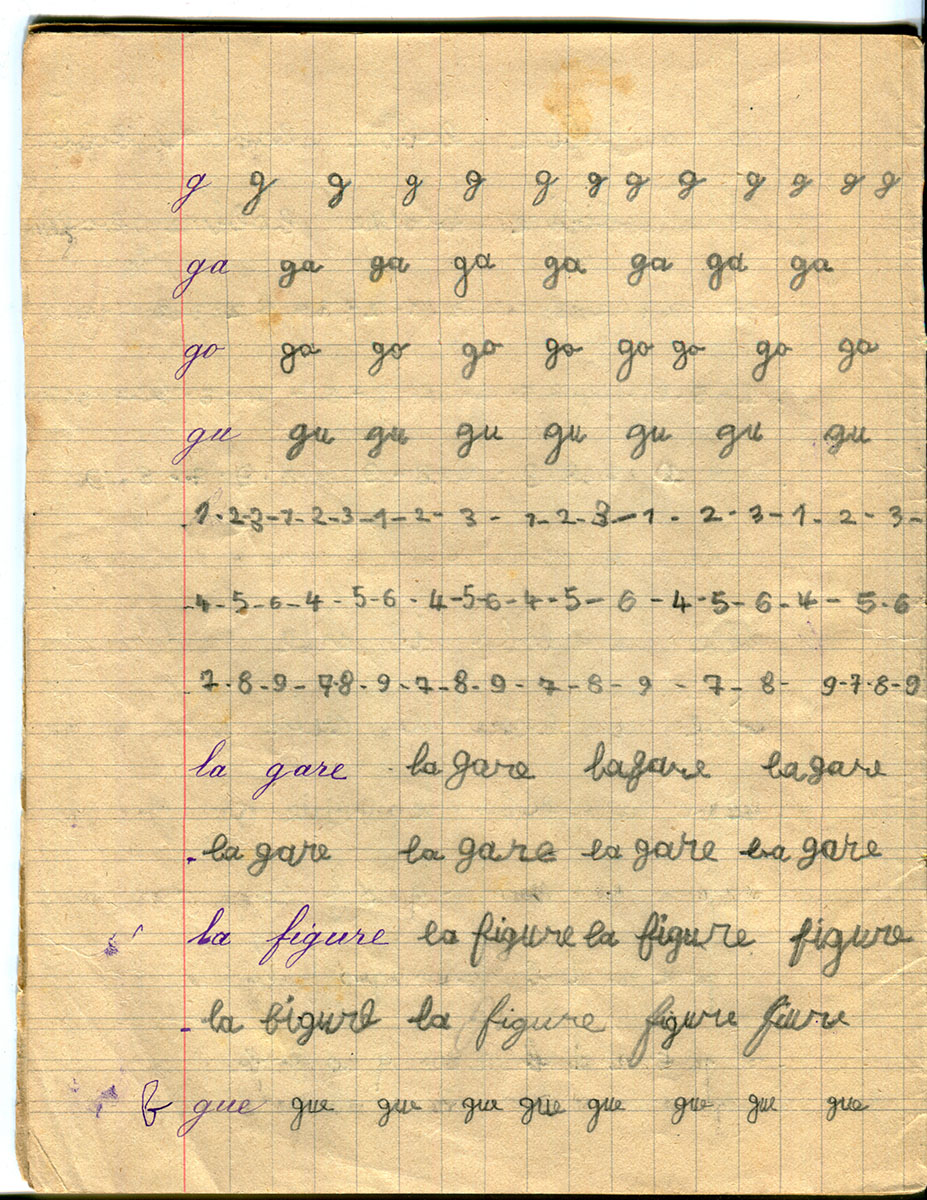 g g g g g g g g g g g g g
ga ga ga ga ga ga ga ga
go ga go go go go go go ga
gu gu gu gu gu gu gu gu
1-2-3-1-2-3-1-2-3-1-2-3-1-2-3-1-2-3-
-4-5-6-4-5-6-4-5-6-4-5-6-4-5-6-4-5-6
-7-8-9-7-8-9-7-8-9-7-8-9-7-8-9-7-8-9
la gare la gare la fare la gare
-la gare la gare la gare la gare
la figure la figure la figure figure
-la bigure la figure figure fiure
B gue gue gue gue gue gue gue gue gue